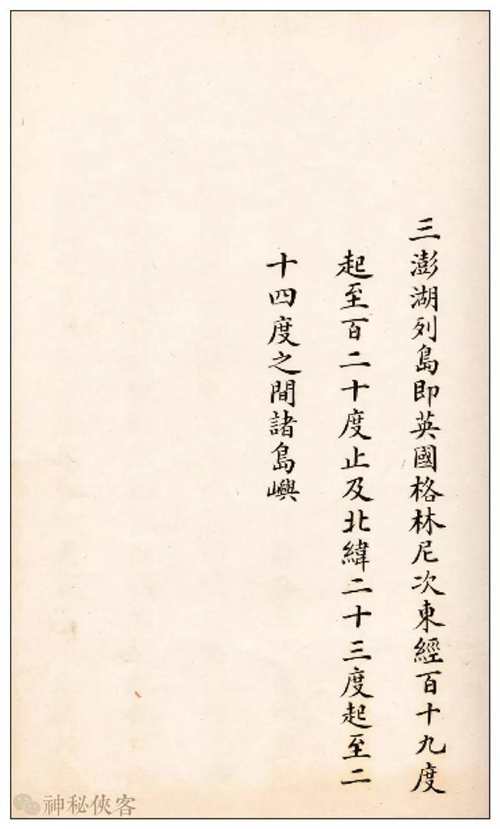 三澎湖列島即英國格林尼次東經百十九度
起至百二十度止及北緯二十三度起至二
十四度之間諸島嶼
神秘侠客